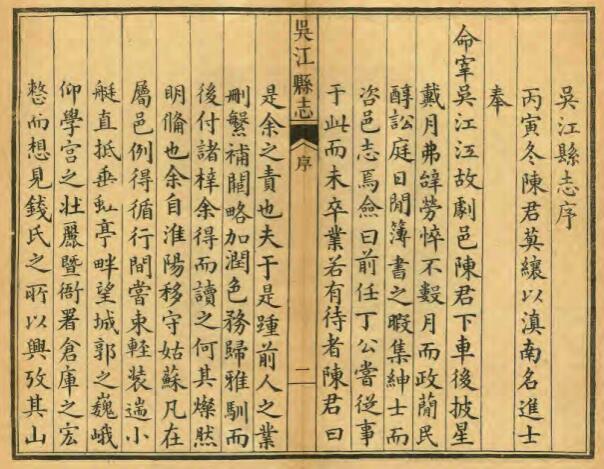 吳江縣志序
丙寅冬陳君莫纕以滇南名進士
奉
命宰吳江江故劇邑陳君下車後披星
戴月弗辭勞悴不數月而政簡民
醇訟庭日閒簿書之暇集紳士而
咨邑志焉僉曰前任丁公嘗從事
于此而未卒業若有待者陳君曰
吳江縣志
序
二
是余之責也夫于是踵前人之業
刪繁補闕略加潤色務歸雅馴而
後付諸梓余得而讀之何其燦然
明備也余自淮陽移守姑蘇凡在
屬邑例得循行間嘗束輕装遄小
艇直抵垂虹亭畔望城郭之巍峨
仰學宮之壯麗暨衙署倉庫之宏
整而想見錢氏之所以興攷其山